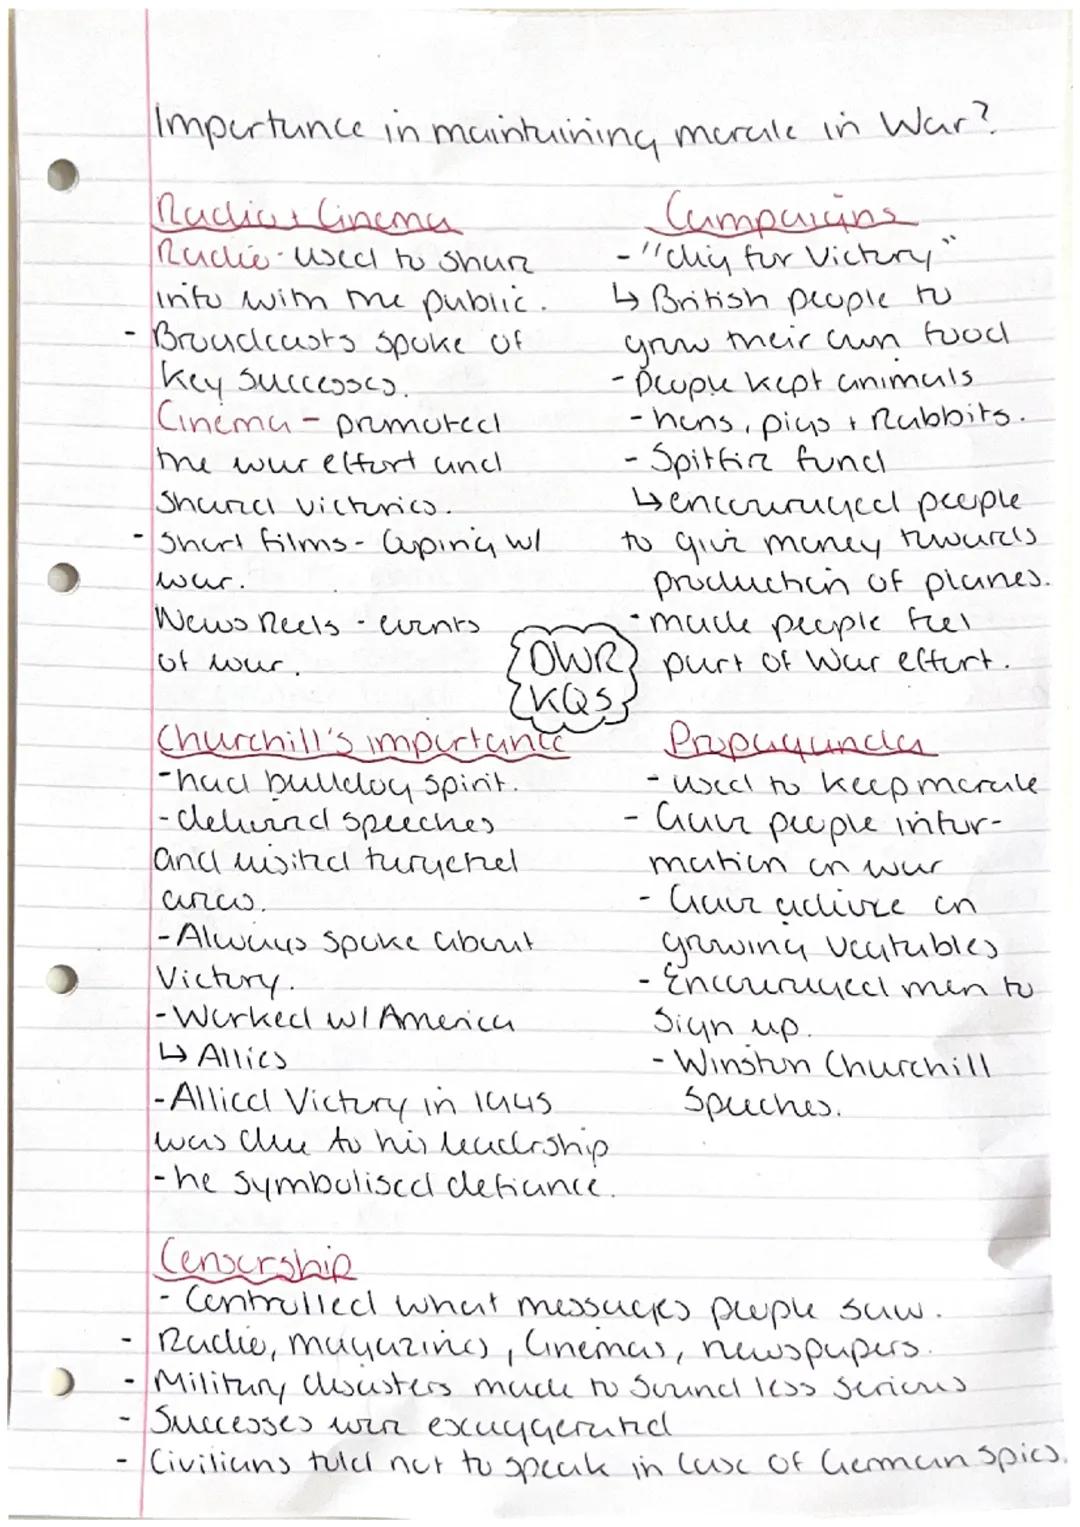 Importance in maintaining morale in War?
Radio + Cinema
Radio - used to share
info with the public.
- Broadcasts spoke of
key successes.
Cinema - promoted
the war effort and
shared victories.
- Short films - Coping w/
war.
News Reels - events
of war.
Campaigns
- "dig for Victory"
↳ British people to
grow their own food
- People kept animals
- hens, pigs + Rabbits.
- Spitfire fund
↳ encouraged people
to give money towards
production of planes.
- made people feel
part of War effort.
OWR
KQS
Churchill's importance
- had bulldog spirit.
- delivered speeches
and visited targeted
areas.
- Always spoke about
Victory.
- Worked w/ America
↳ Allies
- Allied Victory in 1945
was due to his leadership
- he symbolised defiance.
Propaganda
- used to keep morale
- Gave people infor-
mation on war
- Gave advice on
growing Veatables
- Encouraged men to
Sign up.
- Winston Churchill
Speeches.
Censorship
- Controlled what messages people saw.
- Radio, magazines, Cinemas, newspapers.
- Military disasters made to Sound less serious
- Successes were exaggerated
- Civilians told not to speak in case of German spies.